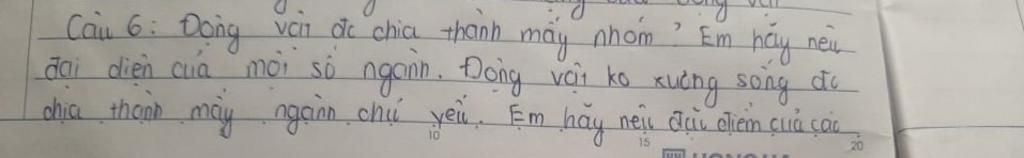 Câu 6: Động vật đc chia thành mấy nhóm? Em hãy nêu
đại diện của một số ngành. Động vật ko xương sống đc
chia thành mấy ngành chủ yếu. Em hãy nêu đặc điểm của các
10 15 20